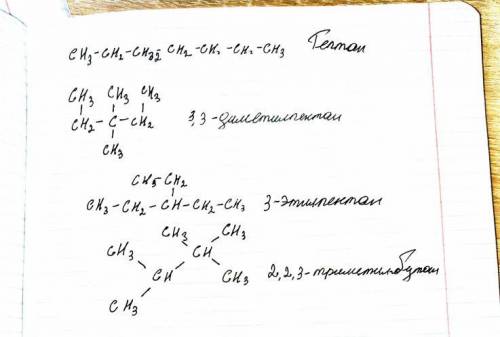 CH3-CH2-CH2-CH2-CH2-CH2-CH3 Гептан
CH3 CH3 CH3
CH2-C-CH2 3,3-диметилпентан
CH3
CH3-CH2
CH3-CH2-CH-CH2-CH3 3-этилпентан
CH3 CH3
CH3 CH
CH CH3 2,2,3-триметилбутан
CH3